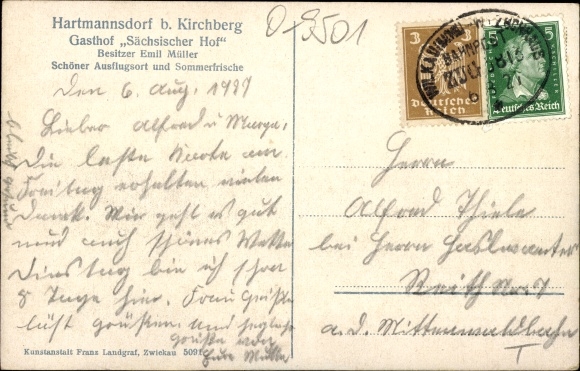 Hartmannsdorf b. Kirchberg
Gasthof „Sächsischer Hof"
Besitzer Emil Müller
Schöner Ausflugsort und Sommerfrische
Den 6. Aug. 1927
Lieber Alfred u
Die letzte Karte am
Freitag erhalten vielen
Dank. Mir geht es gut
und auch schönes Wetter
Dienstag bin ich schon
8 Tage hier. Frau
läst grüßen und
Grüße von
Eure Mutter
Kunstanstalt Franz Landgraf, Zwickau 5091
O+3501
3
Deutsches Reich
5
Deutsches Reich
BAHNPOST
Herrn
Alfred Thiele
bei Herrn
Reith No. 7
a. d. Mittenwaldbahn
T